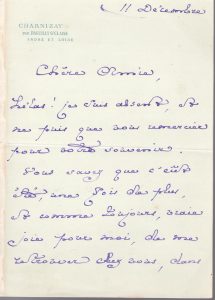 CHARNIZAY
PAR PREUILLY-S/-CLAISE
INDRE ET LOIRE
11 Décembre
Chère Amie,
Hélas! je suis absent, et
ne puis que vous remercier
pour votre souvenir.
Vous savez que c'eût
été, une fois de plus,
et comme toujours, vraie
joie pour moi, de me
retrouver chez vous, dans